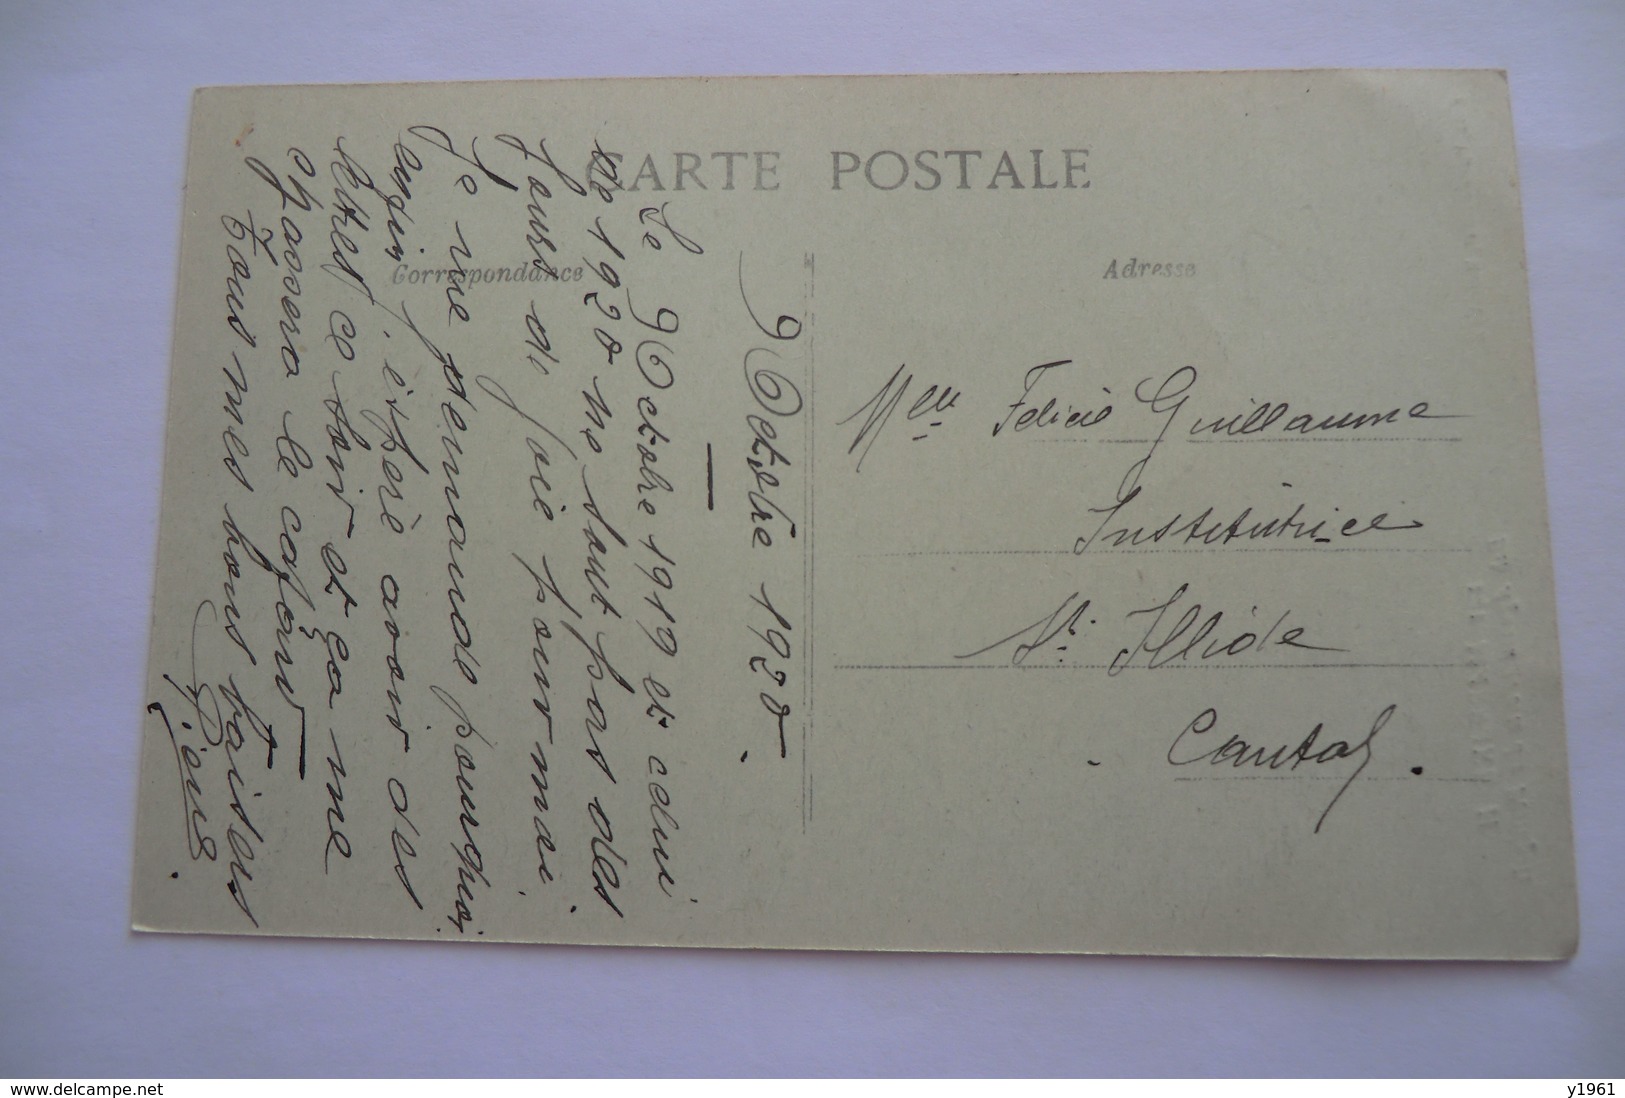 CARTE POSTALE
Correspondance
Adresse
9 Octobre 1920.
Le 9 Octobre 1919 et celui
de 1920 ne sont pas des
jours de joie pour moi.
Je me demande pourquoi,
enfin j'espère avoir des
lettres ce soir et ça me
chassera le cafard
Tous mes bons baisers
Melle Felicie Guillaume
Institutrice
St. Illide
Cantal.
www.delcampe.net
y1961